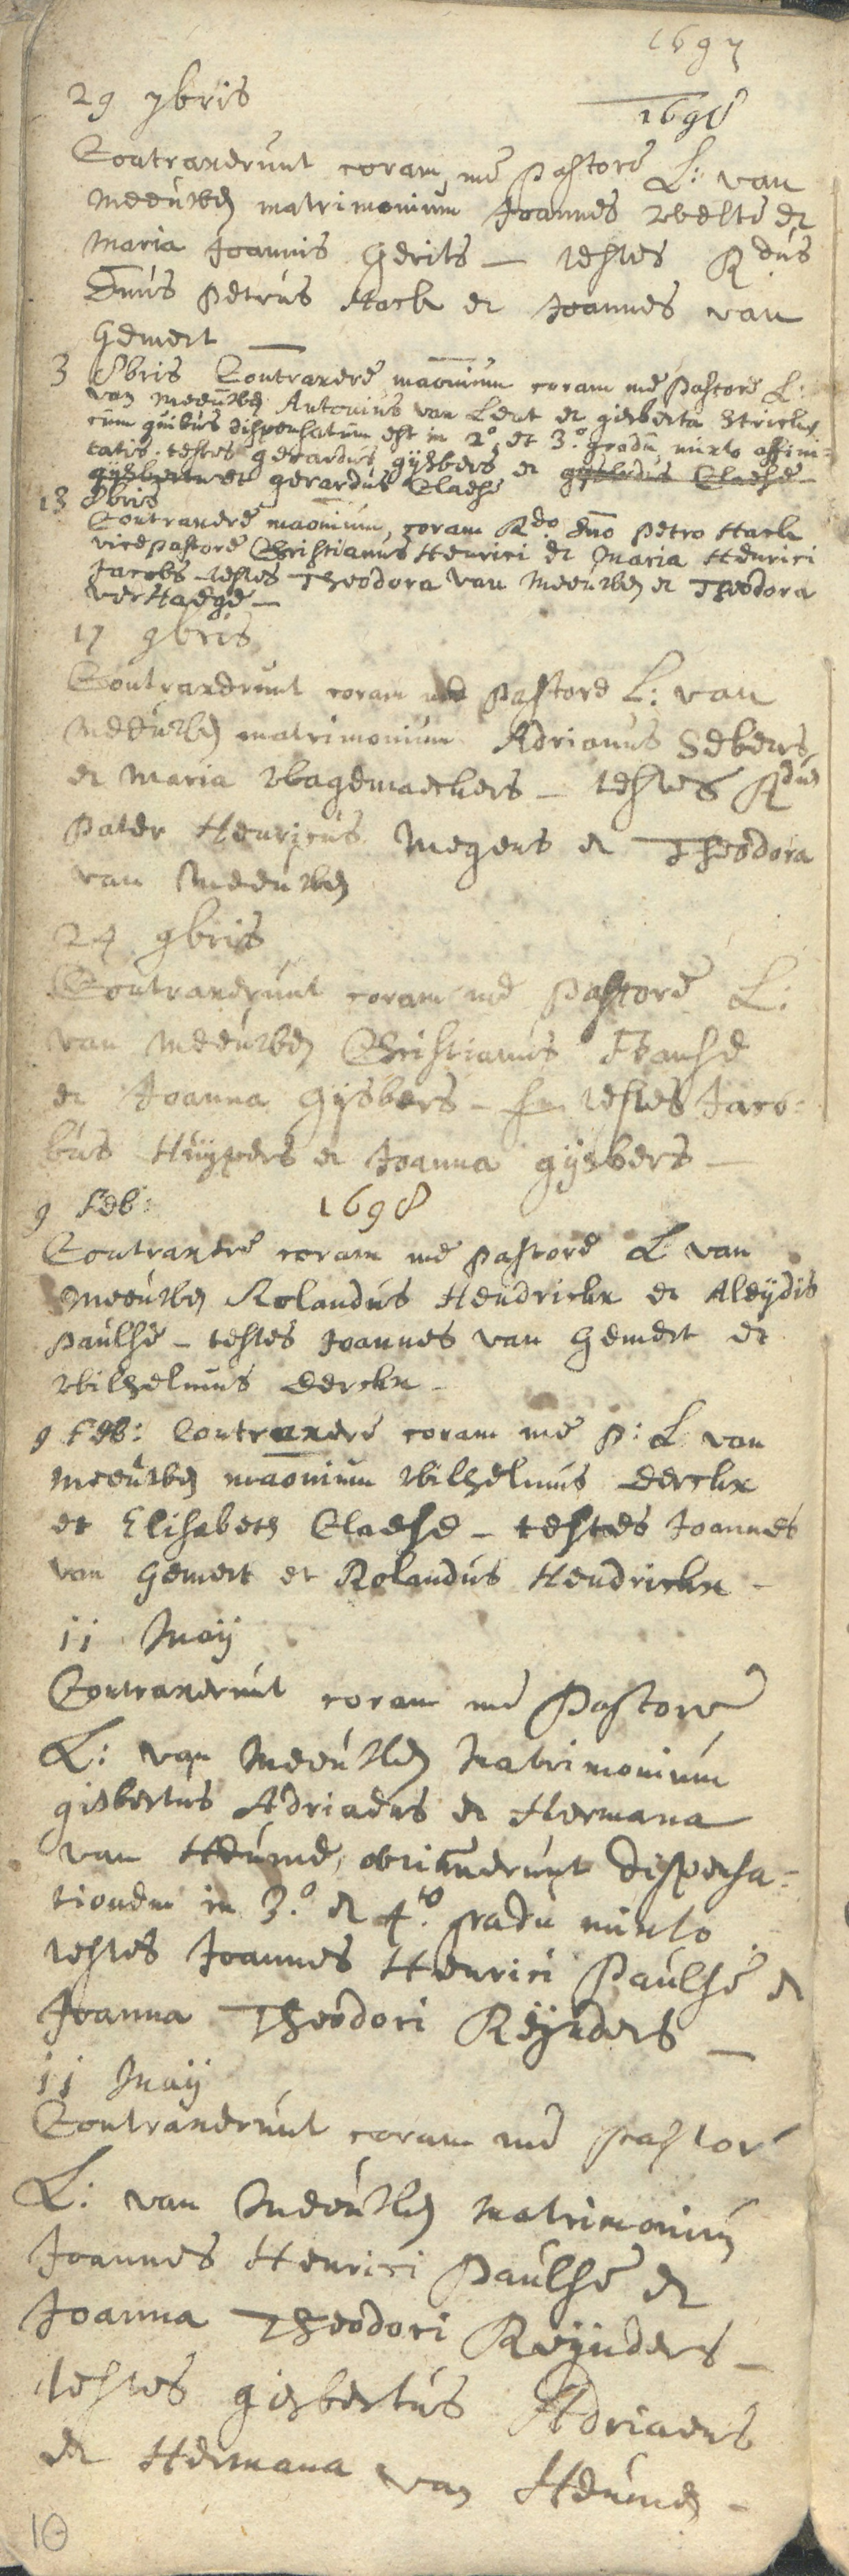 1697
29 7bris
1698
Contraxerunt coram me Pastore L: van
Meeúwen matrimonium Joannes Welte et
Maria Joannis Gerits — testes Rdús
Dnús Petrús Hack et Joannes van
Gemert —
3 8bris Contraxere maonium coram me Pastore L:
van Meeúwen Antonius van Lent et gisberta Stricks
cum quibús dispensatum est in 2º et 3º gradu mixto affini=
tatis. testes gerardús gÿsbers et gysbertus Claesse
gysbertus et gerardús Claesse
13 8bris
Contraxere maonium coram Rdo dno Petro Hack
vicepastore Christianús Henrici et Maria Henrici
Jacobs testes Theodora van Meeúwen et Theodora
verHaege —
17 9bris
Contraxerunt coram me Pastore L: van
Meeúwen matrimonium Adrianus Sebers
et Maria Wagemaeckers — testes Rdus
Pater Henricús Megens et Theodora
van Meeúwen
24 9bris
Contraxerunt coram me Pastore L:
van Meeúwen Christianús Franse
et Joanna Gijsbers — testes Jaco=
bús Huÿpers et Joanna gijsbers —
9 Feb: 1698
Contraxere coram me Pastore L van
Meeúwen Rolandús Hendrickx et Aleÿdis
Paúlse — testes Joannes van Gemert et
Wilhelmus Derckx —
9 Feb: Contraxere coram me P: L van
Meeúwen maonium Wilhelmus Derckx
et Elisabeth Claese — testes Joannes
van Gemert et Rolandús Hendrickx —
11 Maÿ
Contraxerunt coram me Pastore
L: van Meeúwen Matrimonium
gisbertús Adriaens et Hermana
van Heúme, obtinuerúnt dispensa=
tionem in 3.º et 4.to gradu mixto
testes Joannes Henrici Paúlse et
Joanna Theodori Reÿnders —
11 Maÿ
Contraxerúnt coram me Pastore
L: van Meeúwen Matrimoniúm
Joannes Henrici Paúlse et
Joanna Theodori Reÿnders —
testes gisbertús Adriaens
et Hermana van Heúmen —
10